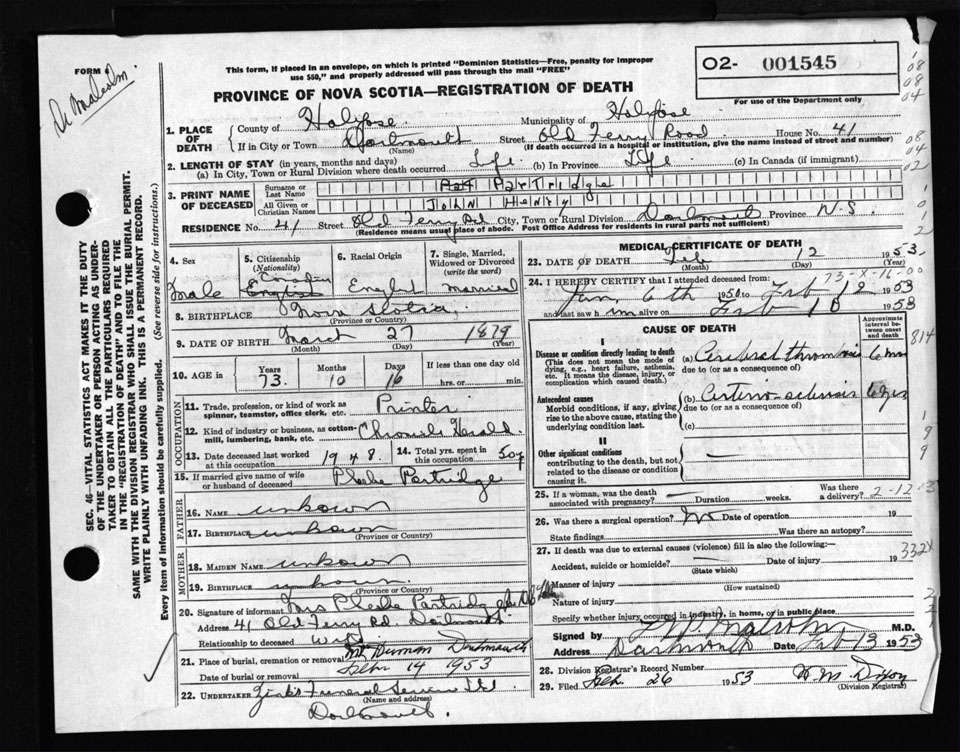 FORM
Dr Malcolm.
This form, if placed in an envelope, on which is printed "Dominion Statistics—Free, penalty for improper
use $50," and properly addressed will pass through the mail "FREE"
PROVINCE OF NOVA SCOTIA—REGISTRATION OF DEATH
O2- 001545
For use of the Department only
1. PLACE OF DEATH
County of Halifax Municipality of Halifax
If in City or Town Dartmouth Street Old Ferry Road House No. 41
(Name) (If death occurred in a hospital or institution, give the name instead of street and number)
2. LENGTH OF STAY (in years, months and days)
(a) In City, Town or Rural Division where death occurred Life (b) In Province Life (c) In Canada (if immigrant)
3. PRINT NAME OF DECEASED
Surname or Last Name Pat Partridge
All Given or Christian Names John Henry
RESIDENCE No. 41 Street Old Ferry Rd City, Town or Rural Division Dartmouth Province N.S.
(Residence means usual place of abode. Post Office Address for residents in rural parts not sufficient)
4. Sex
Male
5. Citizenship
(Nationality)
Canadian
English
6. Racial Origin
English
7. Single, Married, Widowed or Divorced
(write the word)
Married
8. BIRTHPLACE Nova Scotia
(Province or Country)
9. DATE OF BIRTH March 27 1879
(Month) (Day) (Year)
10. AGE in
Years Months Days If less than one day old
73 10 16 hrs. or min.
OCCUPATION
11. Trade, profession, or kind of work as
spinner, teamster, office clerk, etc. Printer
12. Kind of industry or business, as cotton-
mill, lumbering, bank, etc. Chronicle Herald
13. Date deceased last worked
at this occupation 1948
14. Total yrs. spent in
this occupation 50y
15. If married give name of wife
or husband of deceased Phebe Partridge
FATHER
16. NAME unkown
17. BIRTHPLACE unkown
(Province or Country)
MOTHER
18. MAIDEN NAME unkown
19. BIRTHPLACE unkown
(Province or Country)
20. Signature of informant Mrs Phebe Partridge
Address 41 Old Ferry Rd. Dartmouth
Relationship to deceased wife
21. Place of burial, cremation or removal Mt Herman Dartmouth
Date of burial or removal Febr 14 1953
22. UNDERTAKER Zink's Funeral Service Ltd.
(Name and address)
Dartmouth.
MEDICAL CERTIFICATE OF DEATH
23. DATE OF DEATH Feb 12 1953
(Month) (Day) (Year)
73-X-16-00
24. I HEREBY CERTIFY that I attended deceased from:
Jan 6th 1950 to Feb 12 1953
and last saw him alive on Feb 10 1953
CAUSE OF DEATH
Approximate interval between onset and death
I
Disease or condition directly leading to death
(This does not mean the mode of
dying, e.g., heart failure, asthenia,
etc. It means the disease, injury, or
complication which caused death.)
(a) Cerebral thrombosis 6 mos
due to (or as a consequence of)
Antecedent causes
Morbid conditions, if any, giving
rise to the above cause, stating the
underlying condition last.
(b) Arterio-sclerosis
due to (or as a consequence of)
(c)
II
Other significant conditions
contributing to the death, but not
related to the disease or condition
causing it.
25. If a woman, was the death
associated with pregnancy? Duration weeks. Was there
a delivery?
2-12-53
26. Was there a surgical operation? No Date of operation 19
State findings Was there an autopsy?
27. If death was due to external causes (violence) fill in also the following:—
Accident, suicide or homicide? Date of injury 19
(State which)
332X
Manner of injury
(How sustained)
Nature of injury
Specify whether injury occurred in industry, in home, or in public place
Signed by Malcolm M.D.
Address Dartmouth Date Feb 13 1953
28. Division Registrar's Record Number
29. Filed Feb. 26 1953 W. M. Dixon
(Division Registrar)
SEC. 46—VITAL STATISTICS ACT MAKES IT THE DUTY
OF THE UNDERTAKER OR PERSON ACTING AS UNDER-
TAKER TO OBTAIN ALL THE PARTICULARS REQUIRED
IN THE "REGISTRATION OF DEATH" AND TO FILE THE
SAME WITH THE DIVISION REGISTRAR WHO SHALL ISSUE THE BURIAL PERMIT.
WRITE PLAINLY WITH UNFADING INK. THIS IS A PERMANENT RECORD.
Every item of information should be carefully supplied. (See reverse side for instructions.)
08
08
04
08
04
02
814
9
9